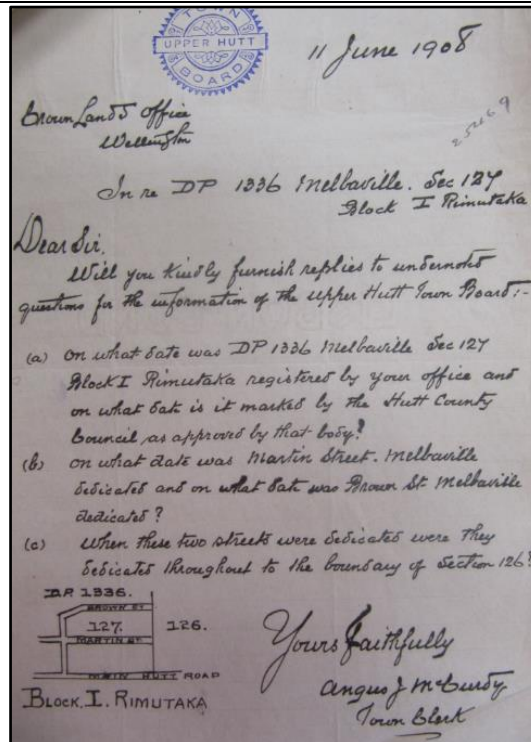 TOWN
UPPER HUTT
BOARD
11 June 1908
Crown Lands Office
Wellington
25469
In re DP 1336 Melbaville. Sec 127
Block I Rimutaka
Dear Sir,
Will you kindly furnish replies to undernoted
questions for the information of the Upper Hutt Town Board:-
(a) On what date was DP 1336 Melbaville Sec 127
Block I Rimutaka registered by your office and
on what date is it marked by the Hutt County
Council, as approved by that body?
(b) On what date was Martin Street. Melbaville
dedicated and on what date was Brown St. Melbaville
dedicated?
(c) When these two streets were dedicated were they
dedicated throughout to the boundary of Section 126?
DP 1336.
BROWN ST.
127. 126.
MARTIN ST.
MAIN HUTT ROAD
BLOCK. I. RIMUTAKA
Yours faithfully
Angus J McCurdy
Town Clerk